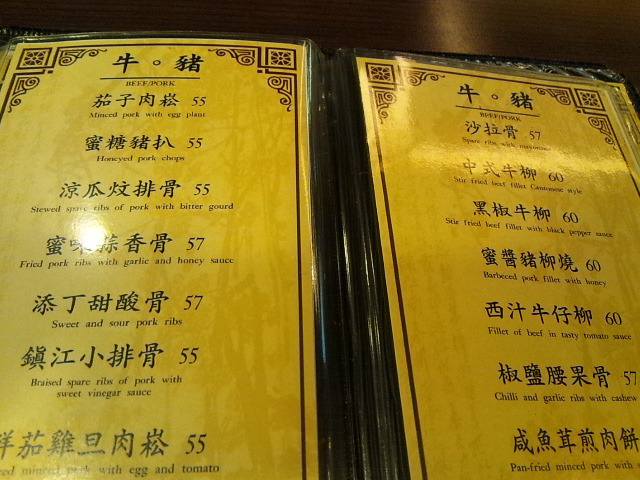 牛。豬
BEEF/PORK
茄子肉崧 55
Minced pork with egg plant
蜜糖豬扒 55
Honeyed pork chops
涼瓜炆排骨 55
Stewed spare ribs of pork with bitter gourd
蜜味蒜香骨 57
Fried pork ribs with garlic and honey sauce
添丁甜酸骨 57
Sweet and sour pork ribs
鎮江小排骨 55
Braised spare ribs of pork with
sweet vinegar sauce
茄雞旦肉崧 55
minced pork with egg and tomato
牛。豬
BEEF/PORK
沙拉骨 57
Spare ribs with mayonnaise
中式牛柳 60
Stir fried beef fillet Cantonese style
黑椒牛柳 60
Stir fried beef fillet with black pepper sauce
蜜醬豬柳燒 60
Barbeced pork fillet with honey
西汁牛仔柳 60
Fillet of beef in tasty tomato sauce
椒鹽腰果骨 57
Chilli and garlic ribs with cashew
咸魚茸煎肉餅
Pan-fried minced pork with